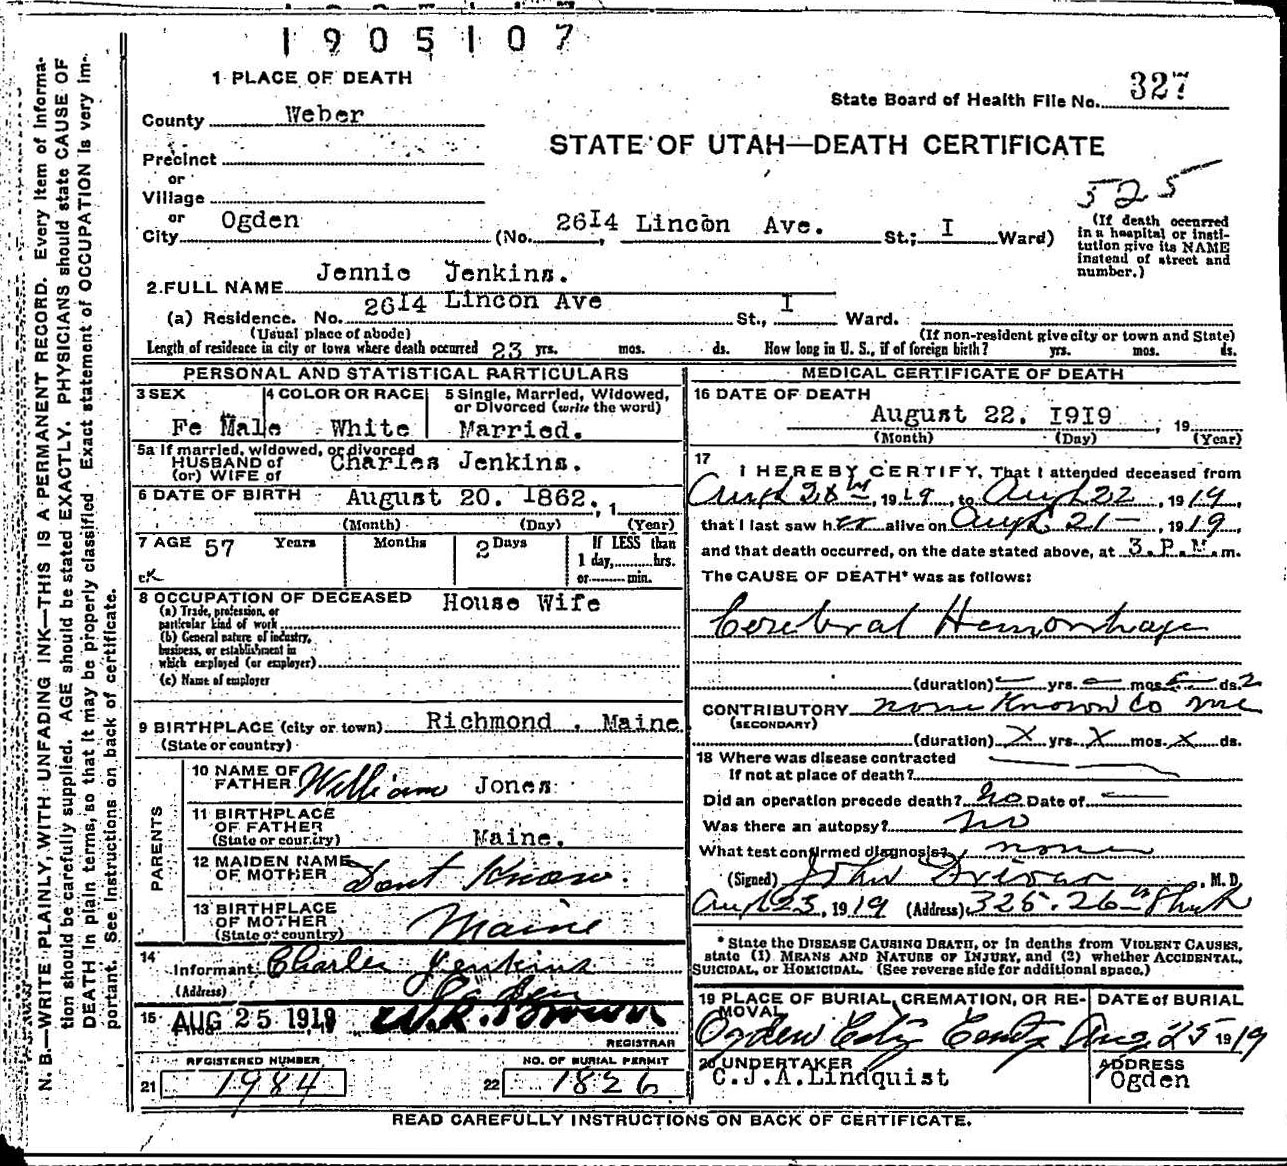 1905107
1 PLACE OF DEATH
State Board of Health File No. 327
County Weber
STATE OF UTAH—DEATH CERTIFICATE
Precinct
or
Village
525
or
City Ogden (No. 26I4 Lincon Ave. St.; I Ward)
(If death occurred in a hospital or institution give its NAME instead of street and number.)
2.FULL NAME Jennie Jenkins.
(a) Residence. No. 26I4 Lincon Ave St., I Ward.
(Usual place of abode) (If non-resident give city or town and State)
Length of residence in city or town where death occurred 23 yrs. mos. ds. How long in U. S., if of foreign birth? yrs. mos. ds.
PERSONAL AND STATISTICAL PARTICULARS
3 SEX Fe Male
4 COLOR OR RACE White
5 Single, Married, Widowed, or Divorced (write the word) Married.
5a If married, widowed, or divorced
HUSBAND of
(or) WIFE of Charles Jenkins.
6 DATE OF BIRTH August 20. I862. , 1
(Month) (Day) (Year)
7 AGE 57 Years Months 2 Days If LESS than
1 day, hrs.
or min.
cK
8 OCCUPATION OF DECEASED House Wife
(a) Trade, profession, or
particular kind of work
(b) General nature of industry,
business, or establishment in
which employed (or employer)
(c) Name of employer
9 BIRTHPLACE (city or town) Richmond . Maine
(State or country)
PARENTS
10 NAME OF FATHER William Jones
11 BIRTHPLACE OF FATHER
(State or country) Maine.
12 MAIDEN NAME OF MOTHER Dont Know.
13 BIRTHPLACE OF MOTHER
(State or country) Maine
14
Informant Charles Jenkins
(Address) Ogden
15 AUG 25 1919 W.R. Brown
REGISTRAR
REGISTERED NUMBER NO. OF BURIAL PERMIT
21 1984 22 1826
MEDICAL CERTIFICATE OF DEATH
16 DATE OF DEATH
August 22. I9I9 , 19
(Month) (Day) (Year)
17
I HEREBY CERTIFY, That I attended deceased from
1919, to Augt 22, 1919,
that I last saw her alive on Augt 21 –, 1919,
and that death occurred, on the date stated above, at 3.P.M. m.
The CAUSE OF DEATH* was as follows:
Cerebral Hemorrhage
(duration) – yrs. – mos. – ds. 2
CONTRIBUTORY none Known to me
(SECONDARY)
(duration) X yrs. X mos. X ds.
18 Where was disease contracted
If not at place of death?
Did an operation precede death? No Date of —
Was there an autopsy? no
What test confirmed diagnosis? none
(Signed) John Driver, M. D.
Augt 23, 1919 (Address) 325. 26th
* State the DISEASE CAUSING DEATH, or in deaths from VIOLENT CAUSES,
state (1) MEANS AND NATURE OF INJURY, and (2) whether ACCIDENTAL,
SUICIDAL, or HOMICIDAL. (See reverse side for additional space.)
19 PLACE OF BURIAL, CREMATION, OR REMOVAL
DATE of BURIAL
Ogden City Aug 25 1919
20 UNDERTAKER
C.J.A.Lindquist
ADDRESS
Ogden
READ CAREFULLY INSTRUCTIONS ON BACK OF CERTIFICATE.
N. B.—WRITE PLAINLY, WITH UNFADING INK—THIS IS A PERMANENT RECORD. Every item of informa-
tion should be carefully supplied. AGE should be stated EXACTLY. PHYSICIANS should state CAUSE OF
DEATH in plain terms, so that it may be properly classified. Exact statement of OCCUPATION is very im-
portant. See Instructions on back of certificate.